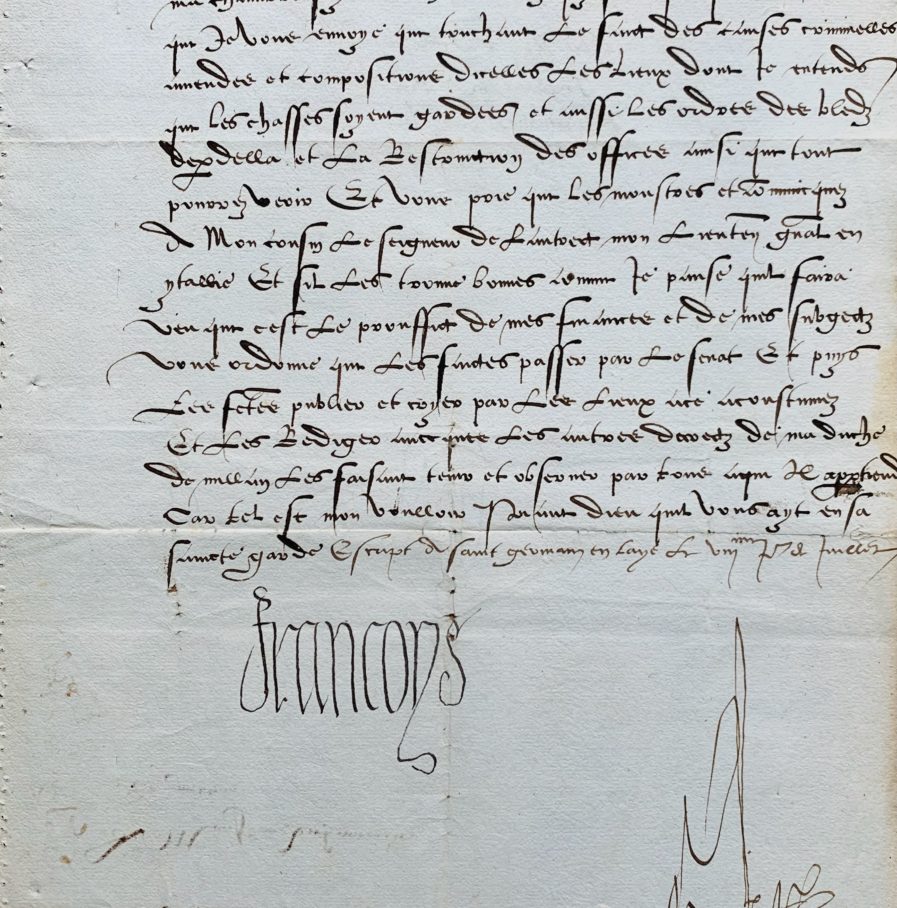 que Je vous envoye que touchant Le faict des causes criminelles
amendes et compositions dicelles Les Lieux dont Je entends
que Les chasses soyent gardees et aussi Les ordres des bledz
della et La Restrinction des offices ainsi que tout
pourrez veoir Et vous prie que Les monstres et communicquez
A Mon cousin Le seigneur de Lautrect mon Lieuten gnal en
ytallie Et sil Les trouve bonnes comme Je panse quil faira
veu que cest Le prouffict de mes finances et de mes subgectz
vous ordonne que Les faictes passer par Le senat Et puys
Les fetes publier et cryer par Les Lieux ace acoustumez
Et Les Rediger avecques Les autres decretz de ma duche
de millan Les faisant tenir et observer par tous aqui Il apptiend
Car tel est mon voulloir Priant dieu quil vous ayt en sa
saincte garde Escript A saint germain en laye Le Jor de Juillet
Francoys